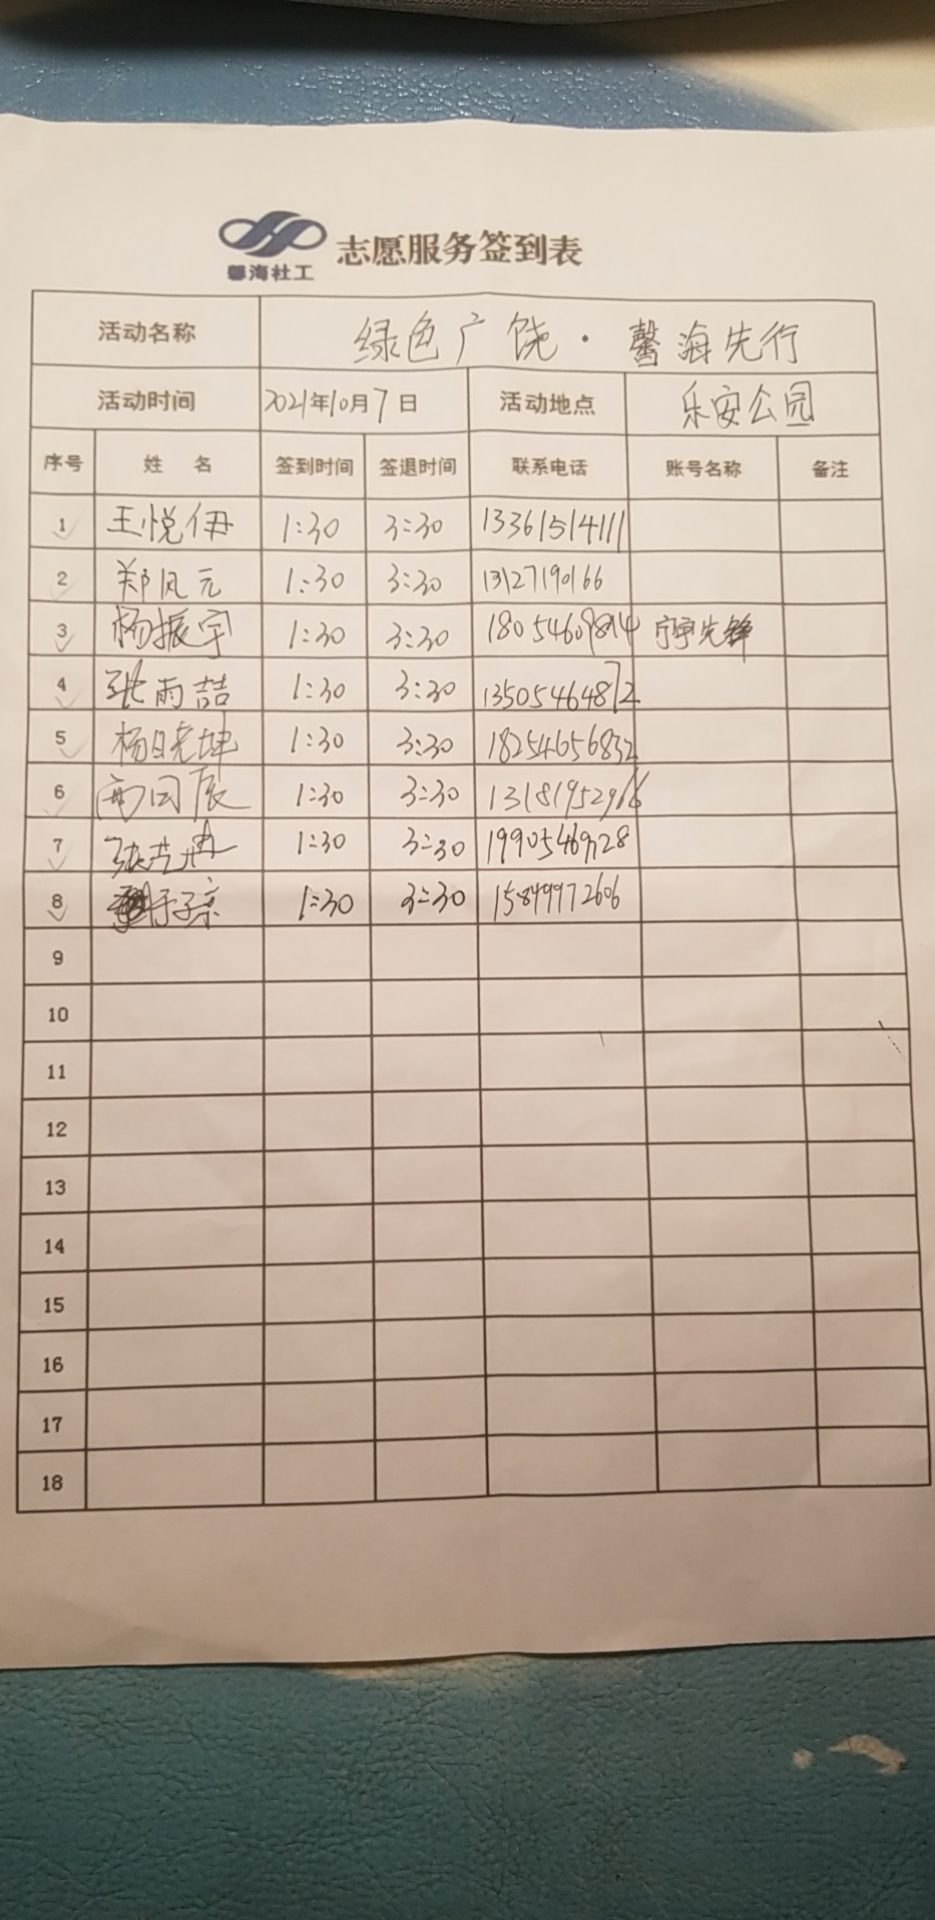 馨海社工 志愿服务签到表
活动名称 绿色广饶·馨海先行
活动时间 2021年10月7日 活动地点 乐安公园
序号 姓名 签到时间 签退时间 联系电话 账号名称 备注
1 王悦伊 1:30 3:30 13361514111
2 郑凤元 1:30 3:30 13127190166
3 杨振宇 1:30 3:30 18054609814 宇先锋
4 张雨喆 1:30 3:30 13505464872
5 杨晓坤 1:30 3:30 18254656832
6 1:30 3:30 13181952966
7 1:30 3:30 19905469128
8 于子 1:30 3:30 15849972606
9
10
11
12
13
14
15
16
17
18